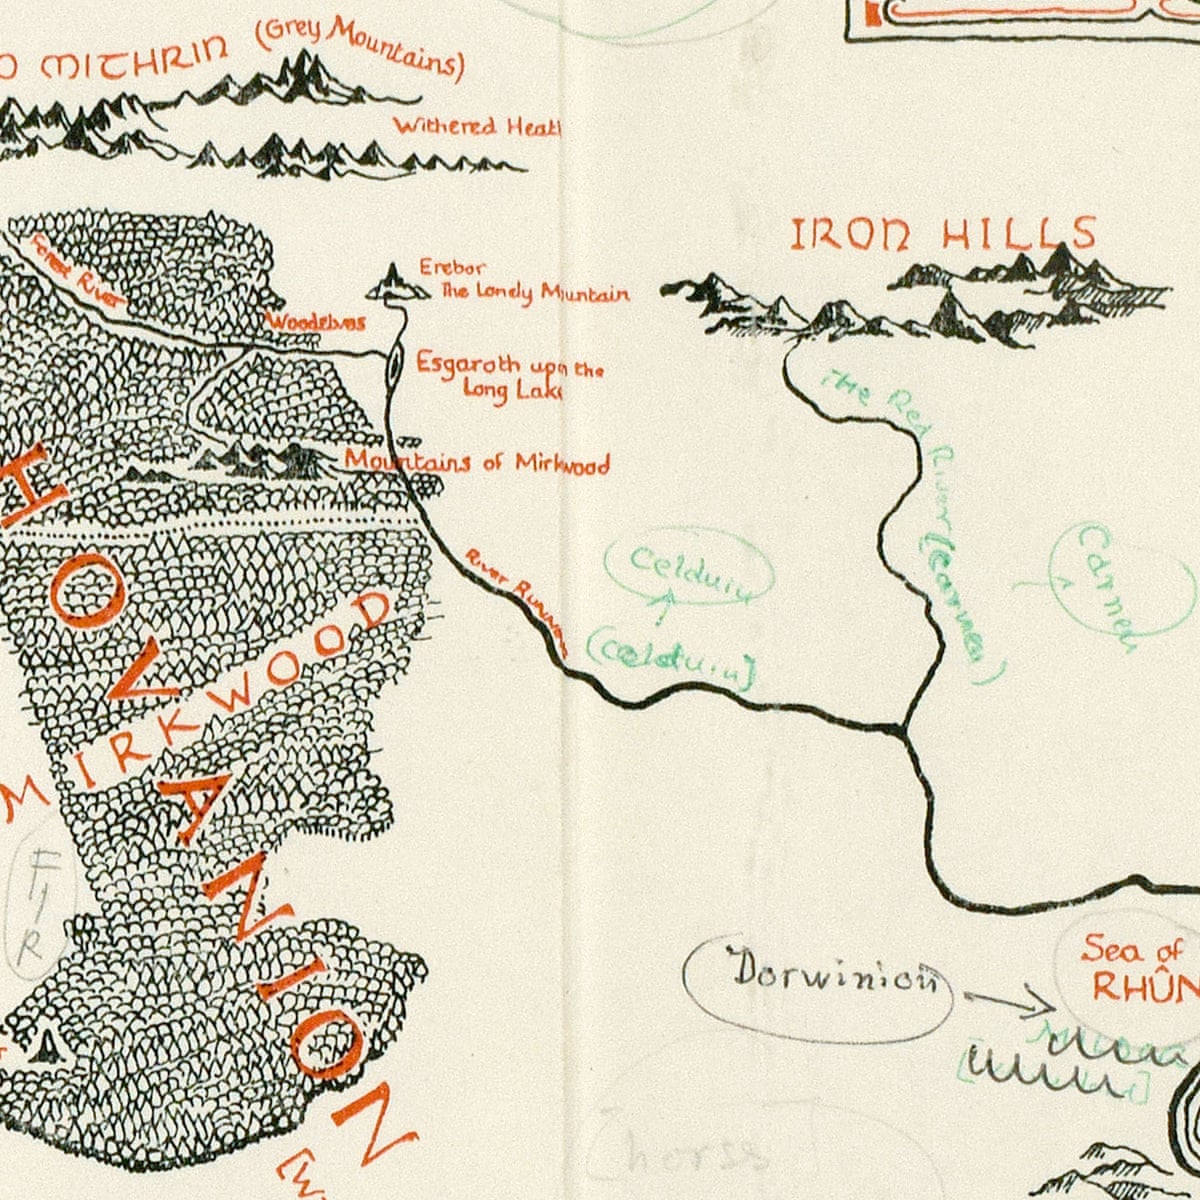 MITHRIN (Grey Mountains)
Withered Heath
IRON HILLS
Forest River
Erebor
The Lonely Mountain
Woodelves
Esgaroth upon the
Long Lake
The Red River (Carnen)
Mountains of Mirkwood
River Running
Celduin
(Celduin)
Carnen
HOVANION
MIRKWOOD
FIR
Dorwinion
Sea of
RHÛN
horss